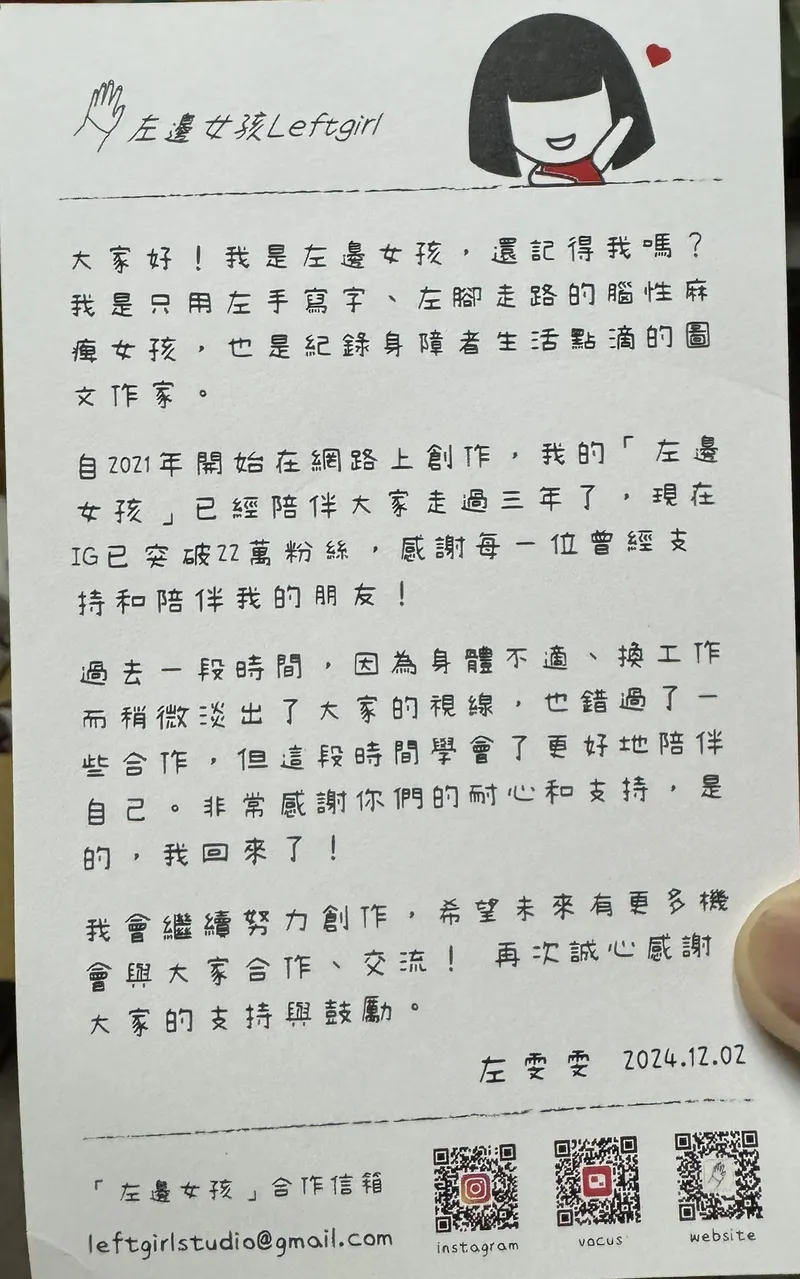 左邊女孩Leftgirl
大家好！我是左邊女孩，還記得我嗎？
我是只用左手寫字、左腳走路的腦性麻
痺女孩，也是紀錄身障者生活點滴的圖
文作家。
自2021年開始在網路上創作，我的「左邊
女孩」已經陪伴大家走過三年了，現在
IG已突破22萬粉絲，感謝每一位曾經支
持和陪伴我的朋友！
過去一段時間，因為身體不適、換工作
而稍微淡出了大家的視線，也錯過了一
些合作，但這段時間學會了更好地陪伴
自己。非常感謝你們的耐心和支持，是
的，我回來了！
我會繼續努力創作，希望未來有更多機
會與大家合作、交流！ 再次誠心感謝
大家的支持與鼓勵。
左雯雯 2024.12.02
「左邊女孩」合作信箱
leftgirlstudio@gmail.com
instagram
vocus
website